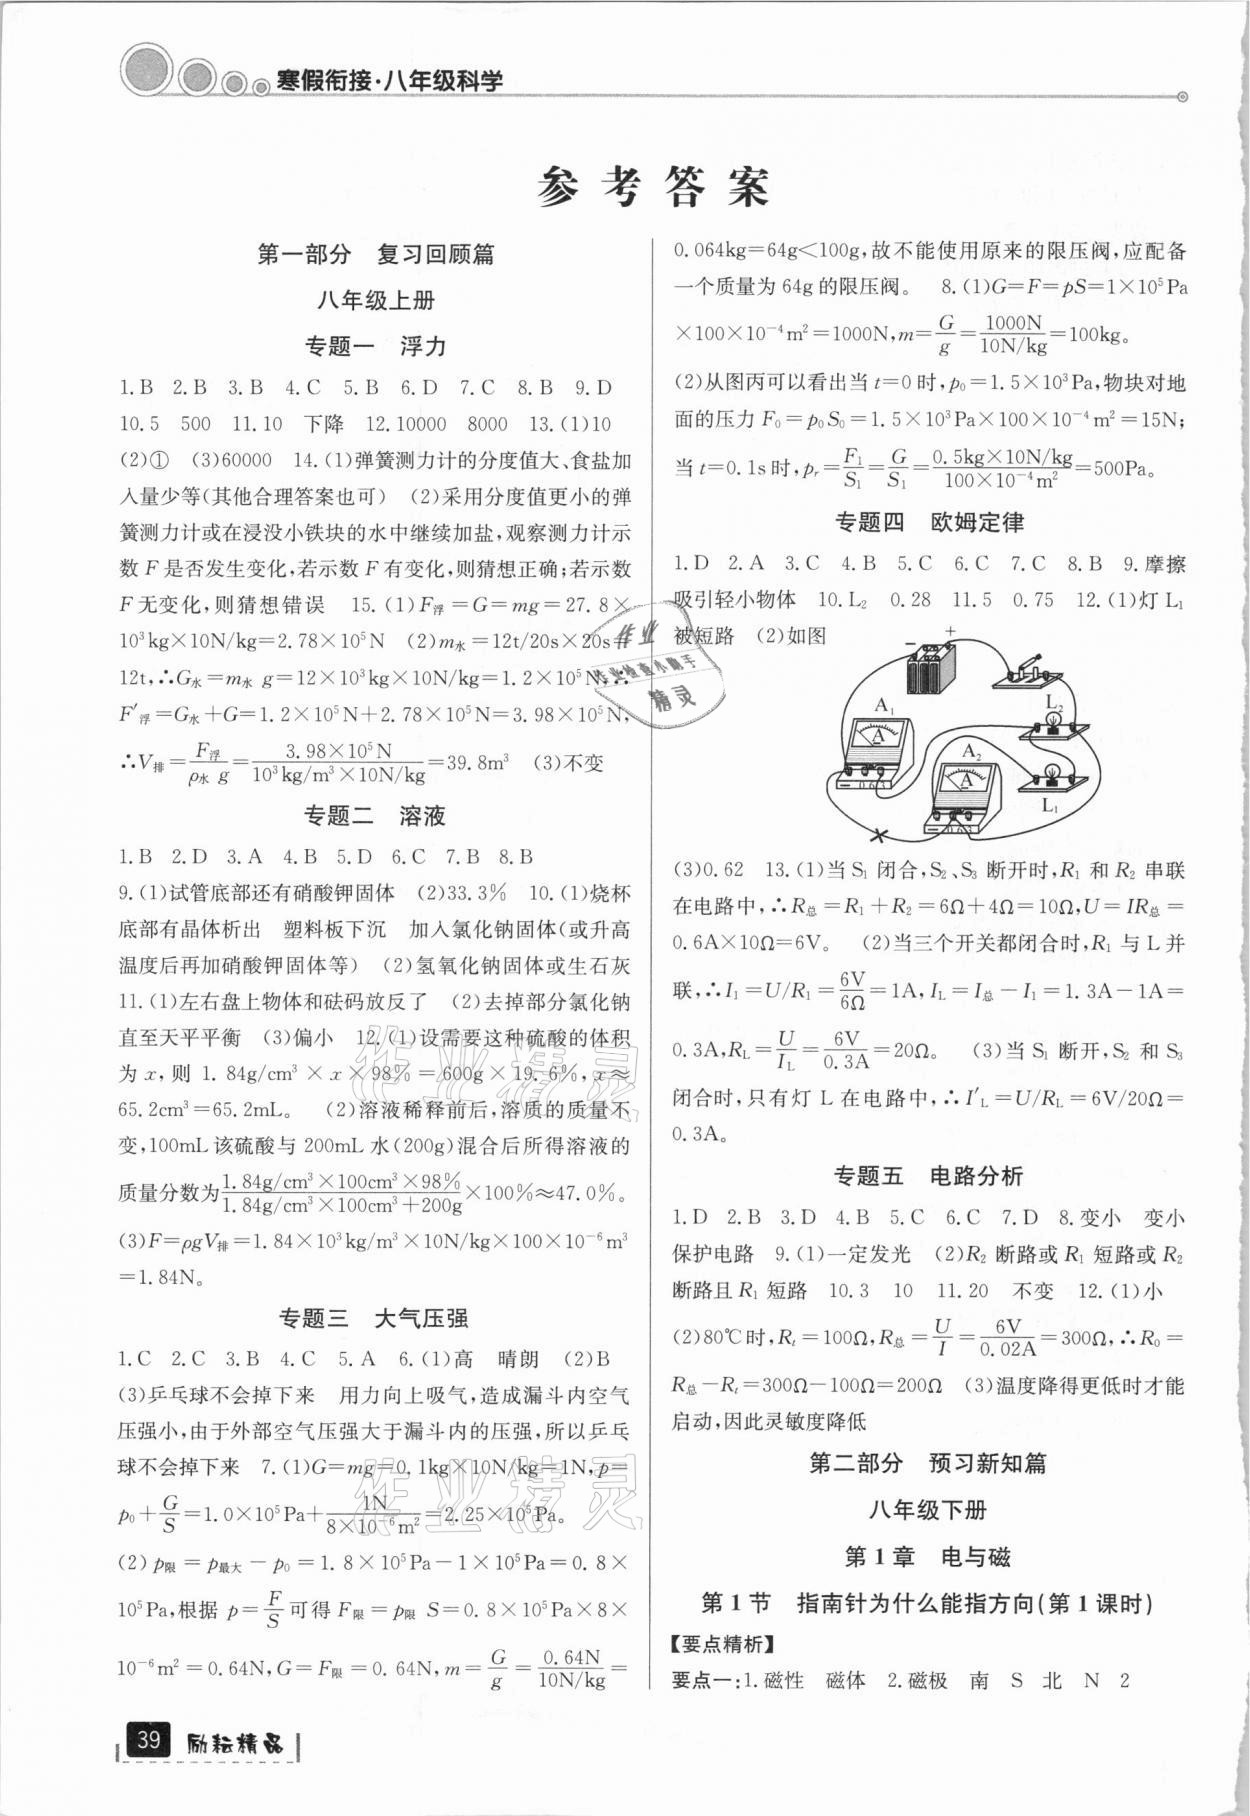 寒假衔接·八年级科学
参考答案
第一部分 复习回顾篇
八年级上册
专题一 浮力
1.B 2.B 3.B 4.C 5.B 6.D 7.C 8.B 9.D
10.5 500 11.10 下降 12.10000 8000 13.(1)10
(2)① (3)60000 14.(1)弹簧测力计的分度值大、食盐加
入量少等(其他合理答案也可) (2)采用分度值更小的弹
簧测力计或在浸没小铁块的水中继续加盐,观察测力计示
数F是否发生变化,若示数F有变化,则猜想正确;若示数
F无变化,则猜想错误 15.(1)F浮=G=mg=27.8×
10³kg×10N/kg=2.78×10⁵N (2)m水=12t/20s×20s=
12t,∴G水=m水 g=12×10³kg×10N/kg=1.2×10⁵N,∴
F′浮=G水+G=1.2×10⁵N+2.78×10⁵N=3.98×10⁵N,
∴V排=F浮/ρ水 g=3.98×10⁵N/10³kg/m³×10N/kg=39.8m³ (3)不变
专题二 溶液
1.B 2.D 3.A 4.B 5.D 6.C 7.B 8.B
9.(1)试管底部还有硝酸钾固体 (2)33.3% 10.(1)烧杯
底部有晶体析出 塑料板下沉 加入氯化钠固体(或升高
温度后再加硝酸钾固体等) (2)氢氧化钠固体或生石灰
11.(1)左右盘上物体和砝码放反了 (2)去掉部分氯化钠
直至天平平衡 (3)偏小 12.(1)设需要这种硫酸的体积
为x,则 1.84g/cm³×x×98%=600g×19.6%,x≈
65.2cm³=65.2mL。 (2)溶液稀释前后,溶质的质量不
变,100mL该硫酸与200mL水(200g)混合后所得溶液的
质量分数为1.84g/cm³×100cm³×98%/1.84g/cm³×100cm³+200g×100%≈47.0%。
(3)F=ρgV排=1.84×10³kg/m³×10N/kg×100×10⁻⁶m³
=1.84N。
专题三 大气压强
1.C 2.C 3.B 4.C 5.A 6.(1)高 晴朗 (2)B
(3)乒乓球不会掉下来 用力向上吸气,造成漏斗内空气
压强小,由于外部空气压强大于漏斗内的压强,所以乒乓
球不会掉下来 7.(1)G=mg=0.1kg×10N/kg=1N,p=
p₀+G/S=1.0×10⁵Pa+1N/8×10⁻⁶m²=2.25×10⁵Pa。
(2)p限=p最大-p₀=1.8×10⁵Pa-1×10⁵Pa=0.8×
10⁵Pa,根据p=F/S可得F限=p限 S=0.8×10⁵Pa×8×
10⁻⁶m²=0.64N,G=F限=0.64N,m=G/g=0.64N/10N/kg=
39 励耘精品
0.064kg=64g<100g,故不能使用原来的限压阀,应配备
一个质量为64g的限压阀。 8.(1)G=F=pS=1×10⁵Pa
×100×10⁻⁴m²=1000N,m=G/g=1000N/10N/kg=100kg。
(2)从图丙可以看出当t=0时,p₀=1.5×10³Pa,物块对地
面的压力F₀=p₀S₀=1.5×10³Pa×100×10⁻⁴m²=15N;
当t=0.1s时,pᵣ=F₁/S₁=G/S₁=0.5kg×10N/kg/100×10⁻⁴m²=500Pa。
专题四 欧姆定律
1.D 2.A 3.C 4.B 5.C 6.C 7.C 8.B 9.摩擦
吸引轻小物体 10.L₂ 0.28 11.5 0.75 12.(1)灯L₁
被短路 (2)如图
− +
A₁ L₂
A A₂
A L₁
− 0.6 3
− 0.6 3
(3)0.62 13.(1)当S₁闭合,S₂、S₃断开时,R₁和R₂串联
在电路中,∴R总=R₁+R₂=6Ω+4Ω=10Ω,U=IR总=
0.6A×10Ω=6V。 (2)当三个开关都闭合时,R₁与L并
联,∴I₁=U/R₁=6V/6Ω=1A,I_L=I总-I₁=1.3A-1A=
0.3A,R_L=U/I_L=6V/0.3A=20Ω。 (3)当S₁断开,S₂和S₃
闭合时,只有灯L在电路中,∴I′_L=U/R_L=6V/20Ω=
0.3A。
专题五 电路分析
1.D 2.B 3.D 4.B 5.C 6.C 7.D 8.变小 变小
保护电路 9.(1)一定发光 (2)R₂断路或R₁短路或R₂
断路且R₁短路 10.3 10 11.20 不变 12.(1)小
(2)80℃时,Rₜ=100Ω,R总=U/I=6V/0.02A=300Ω,∴R₀=
R总-Rₜ=300Ω-100Ω=200Ω (3)温度降得更低时才能
启动,因此灵敏度降低
第二部分 预习新知篇
八年级下册
第1章 电与磁
第1节 指南针为什么能指方向(第1课时)
【要点精析】
要点一:1.磁性 磁体 2.磁极 南 S 北 N 2
作业
作业检查小助手
精灵
作业精灵
作业精灵